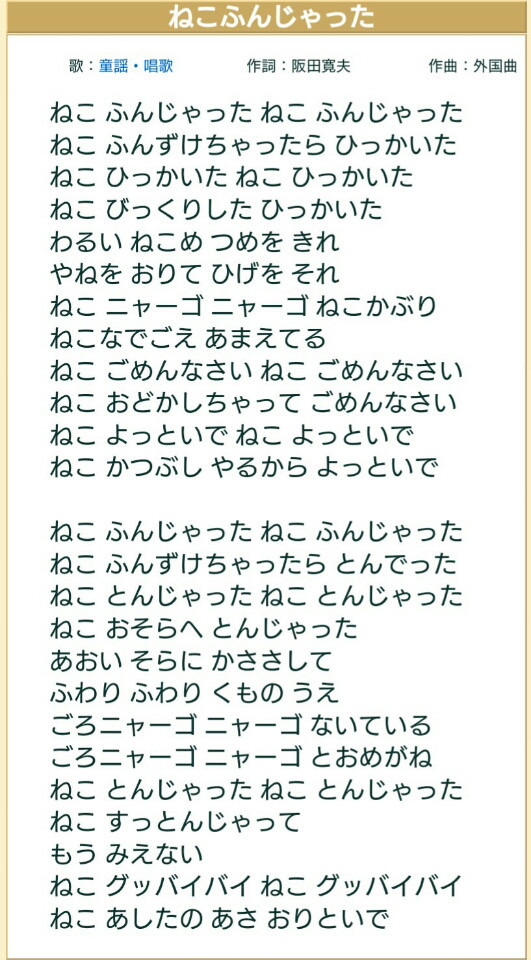 ねこふんじゃった
歌：童謡・唱歌 作詞：阪田寛夫 作曲：外国曲
ねこ ふんじゃった ねこ ふんじゃった
ねこ ふんずけちゃったら ひっかいた
ねこ ひっかいた ねこ ひっかいた
ねこ びっくりした ひっかいた
わるい ねこめ つめを きれ
やねを おりて ひげを それ
ねこ ニャーゴ ニャーゴ ねこかぶり
ねこなでごえ あまえてる
ねこ ごめんなさい ねこ ごめんなさい
ねこ おどかしちゃって ごめんなさい
ねこ よっといで ねこ よっといで
ねこ かつぶし やるから よっといで

ねこ ふんじゃった ねこ ふんじゃった
ねこ ふんずけちゃったら とんでった
ねこ とんじゃった ねこ とんじゃった
ねこ おそらへ とんじゃった
あおい そらに かささして
ふわり ふわり くもの うえ
ごろニャーゴ ニャーゴ ないている
ごろニャーゴ ニャーゴ とおめがね
ねこ とんじゃった ねこ とんじゃった
ねこ すっとんじゃって
もう みえない
ねこ グッバイバイ ねこ グッバイバイ
ねこ あしたの あさ おりといで